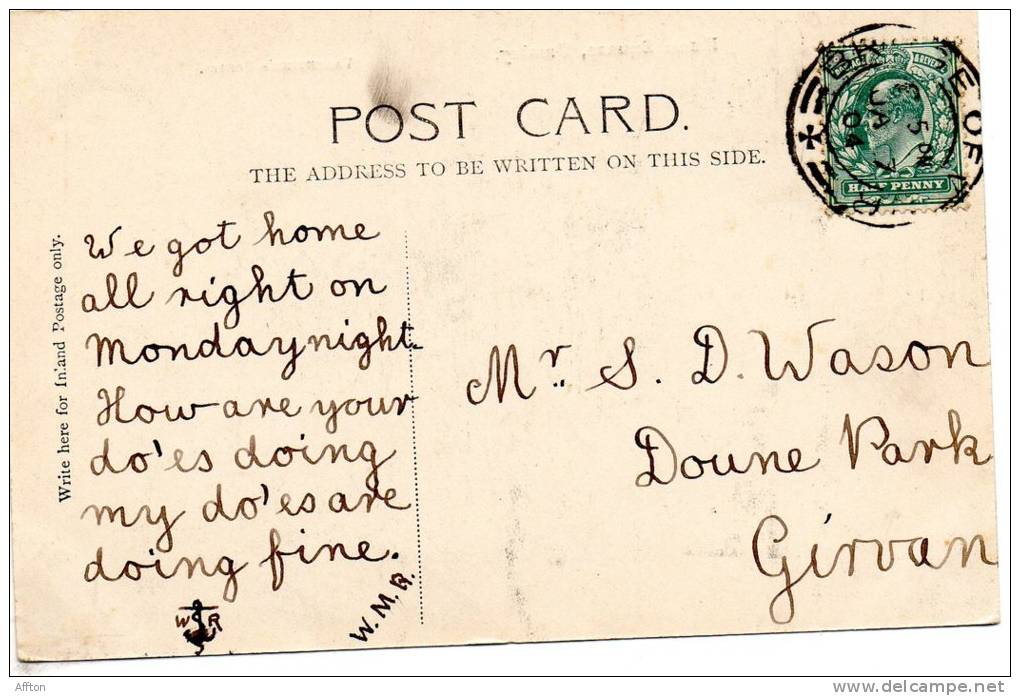 POST CARD.
THE ADDRESS TO BE WRITTEN ON THIS SIDE.
Write here for Inland Postage only.
We got home
all right on
Monday night.
How are your
do'es doing
my do'es are
doing fine.
W.M.R.
W R
Mr. S. D. Wason
Doune Park
Girvan
HALF PENNY
OF
5
JA 7
04
Affton
www.delcampe.net